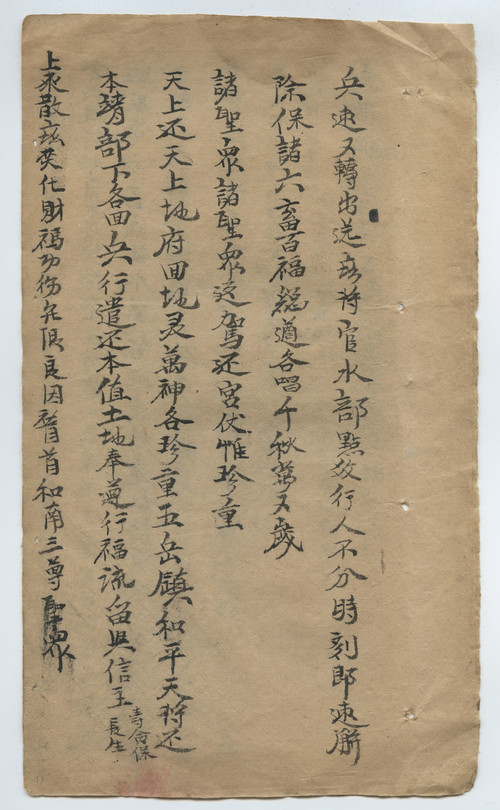 兵速又轉出送玄将官水部點放行人不分時刻即速解
除保諸六畜百福總遒各唱千秋萬又歲
諸聖眾諸聖眾返駕还宮伏惟珍重
天上还天上地府回地灵萬神各珍重五岳鎮和平天将还
本靖部下各回兵行遣还本值土地奉遵行福流留與信主
壽命保
長生
上來散玄焚化財禑功伤无限良因稽首和南三尊聖眾